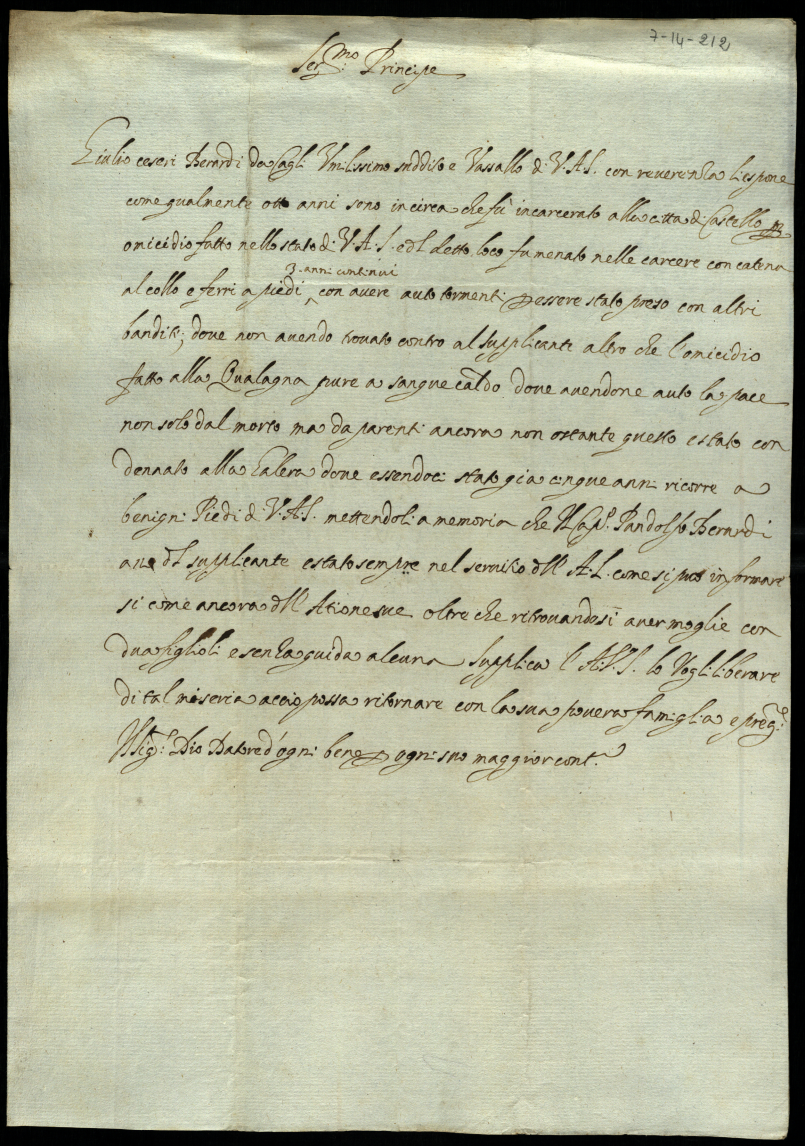 7-14-212
Ser.mo Principe
Giulio ceseri Berardi da Cagli Vmilissimo suddito e Vassallo di V.A.S. con reverenza li espone
come qualmente otto anni sono in circa che fù incarcerato alla citta di Castello p
omicidio fatto nello stato di V.A.S. e dl detto loco fu menato nelle carcere con catena
3. anni continui
al collo e ferri a piedi ^ con avere auto tormenti p essere stato preso con altri
banditi, dove non avendo trovato contro al supplicante altro che l'omicidio
fatto alla Qualagna pure a sangue caldo dove avendone auto la pace
non solo dal morto ma da parenti ancora non ostante questo e stato con
dennato alla Galera dove essendoci stato gia cinque anni ricorre a
benigni Piedi di V.A.S. mettendoli a memoria che Il Cap.o Pandolfo Berardi
dl supplicante e stato sempre nel servitio dll A.S. come si puo informare
si come ancora dll Ationesue oltre che ritrovandosi aver moglie con
dua figlioli e senza guida alcuna supplica l'A.V.S. lo vogli liberare
di tal miseria accio possa ritornare con la sua povera famiglia e preg.e
Il Sig.r Dio Datore d'ogni bene p ogni suo maggior cont.o